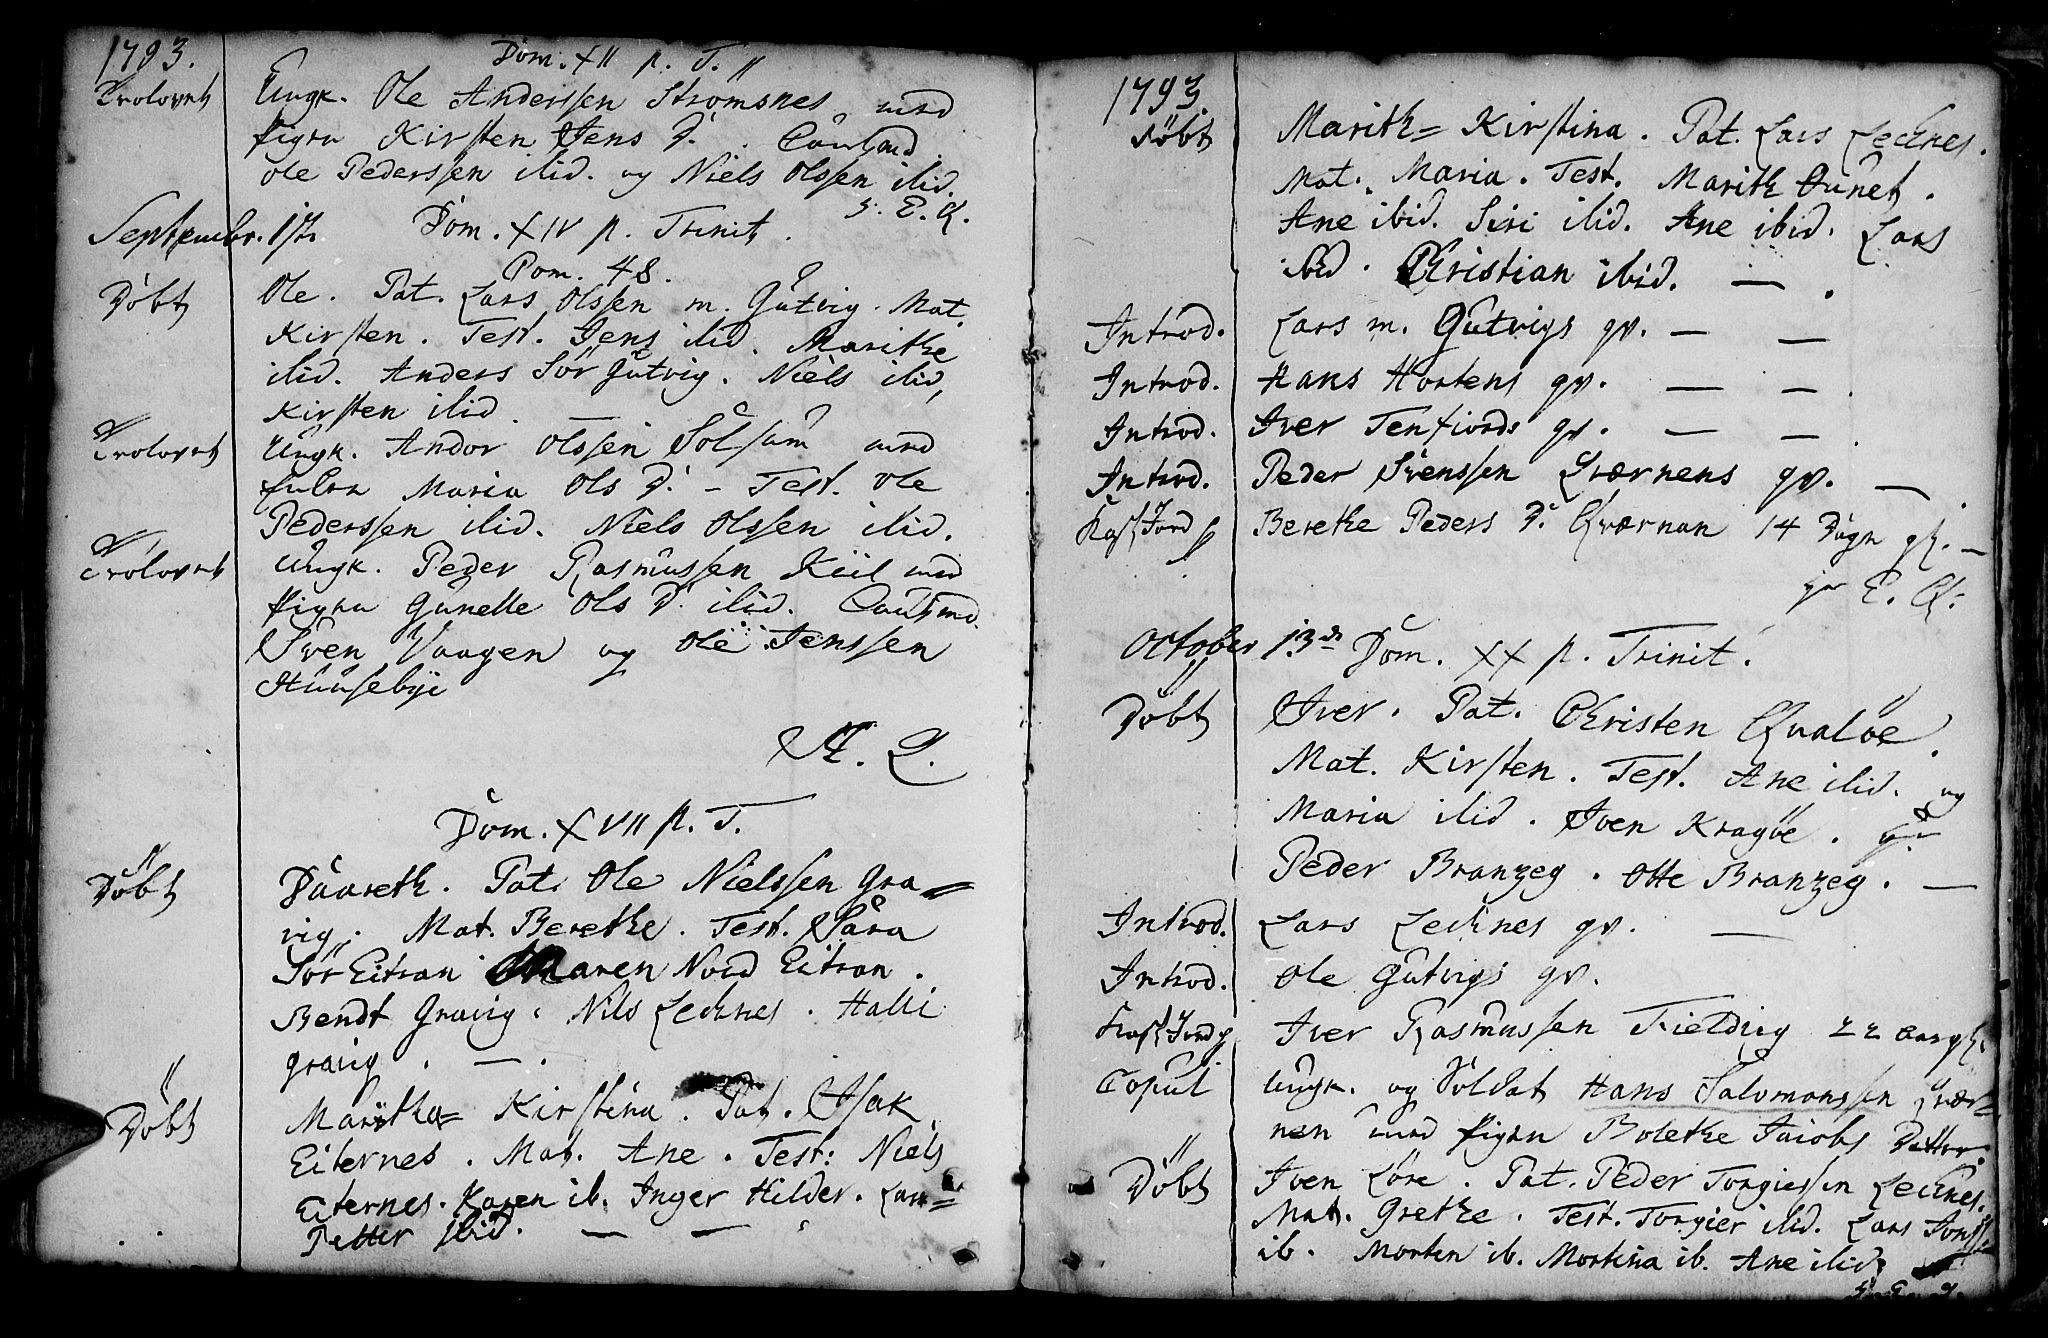 1793.
Dom. XII p. T.
Trolovet Ungk. Ole Anderssen Strømsnes med
Pigen Kirsten Jens D.
Ole Pederssen ibid. og Niels Olssen ibid.
Septembr. Dom. XIV p. Trinit.
Pom. 48.
Døbt Ole. Pat. Lars Olssen m. Gutvig. Mat.
Kirsten. Test. Jens ibid. Marithe
ibid. Anders Sør Gutvig. Niels ibid,
Kirsten ibid.
Trolovet Ungk. Andor Olssen Solsem med
Maria Ols D. – Test. Ole
Pederssen ibid. Niels Olssen ibid.
Trolovet Ungk. Peder Rasmussen Kiil med
Pigen Gunelle Ols D. ibid.
Sven Vaagen og Ole Jenssen
Huusebye
Dom. XVII p. T.
Døbt Daareth. Pat. Ole Nielssen Gra=
vig. Mat. Berethe. Test. Sara
Sør Eitran Maren Nord Eitran.
Bendt Gravig. Nils Lecknes. Halli
gravig. —.
Døbt Maritha= Kirstina. Pat. Isak
Eiternes. Mat. Ane. Test: Niels
Eiternes. Karen ib. Inger Hilder. Lars=
Petter ibid. — —
1793.
Døbt Marith= Kirstina. Pat. Lars Lecknes.
Mat. Maria. Test. Marith Aunet.
Ane ibid. Siri ibid. Ane ibid. Lars
ibid. Christian ibid. — .
Introd. Lars m. Gutvigs qv. — —
Introd. Hans Hortens qv. — —
Introd. Iver Tenfiords qv. — — .
Introd. Peder Svenssen Qværnens qv. —
Berethe Peders D. Qværnan 14 Dage gl. —
October 13de Dom. XX p. Trinit.
Døbt Iver. Pat. Christen Qvaløe.
Mat. Kirsten. Test. Ane ibid. og
Maria ibid. Iven Kragøe.
Peder Branzeg. Otte Branzeg. —
Introd. Lars Lecknes qv. —
Introd. Ole Gutvigs qv.
Iver Rasmussen Fieldvig 22 aar gl.
Copul Ungk. og Soldat Hans Salomonssen Qvær=
nen med Pigen Bolethe Jacobs Detter.
Døbt Iven Løre. Pat. Peder Torgierssen Lecknes.
Mat. Grethe. Test. Torgier ibid. Lars
ib. Morten ib. Mortina ib. Ane ibid.